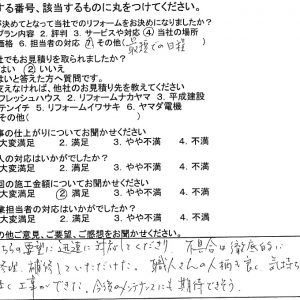 する番号、該当するものに丸をつけてください。
が決めてとなって当社でのリフォームをお決めになりましたか?
プラン内容 2. 評判 3. サービスや対応 ④ 当社の場所
価格 6. 担当者の対応 ⑦ その他( 最短での日程
社でもお見積りを取られましたか?
はい ② いいえ
はいと答えた方へ質問です。
支えなければ、他社のお見積り先を教えてください
フレッシュハウス 2. リフォームナカヤマ 3. 平成建設
テンイチ 5. リフォームイワサキ 6. ヤマダ電機
その他(
事の仕上がりについてお聞かせください
大変満足 2. 満足 3. やや不満 4. 不満
人の対応はいかがでしたか?
大変満足 2. 満足 3. やや不満 4. 不満
回の施工金額についてお聞かせください
大変満足 ② 満足 3. やや不満 4. 不満
業担当者の対応はいかがでしたか?
大変満足 2. 満足 3. やや不満 4. 不満
の他ご意見、ご要望、ご感想をお聞かせください。
ちらの要望に迅速に対応してくださり 不具合は徹底的に
修理、補修していただけた。職人さんの人柄も良く 気持ち
良く工事ができた。今後のメンテナンスにも期待できそう。